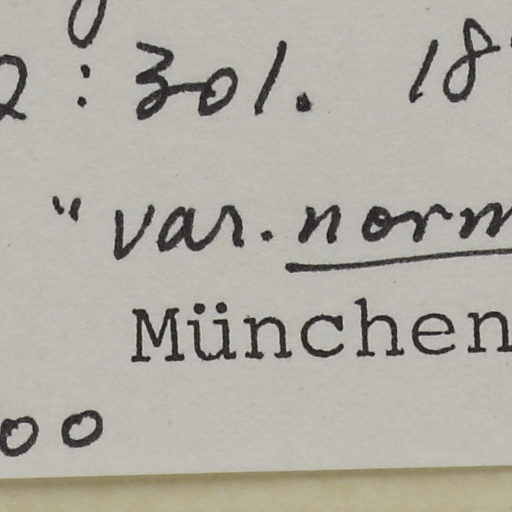 2 : 301. 18
" var. norm
München
00